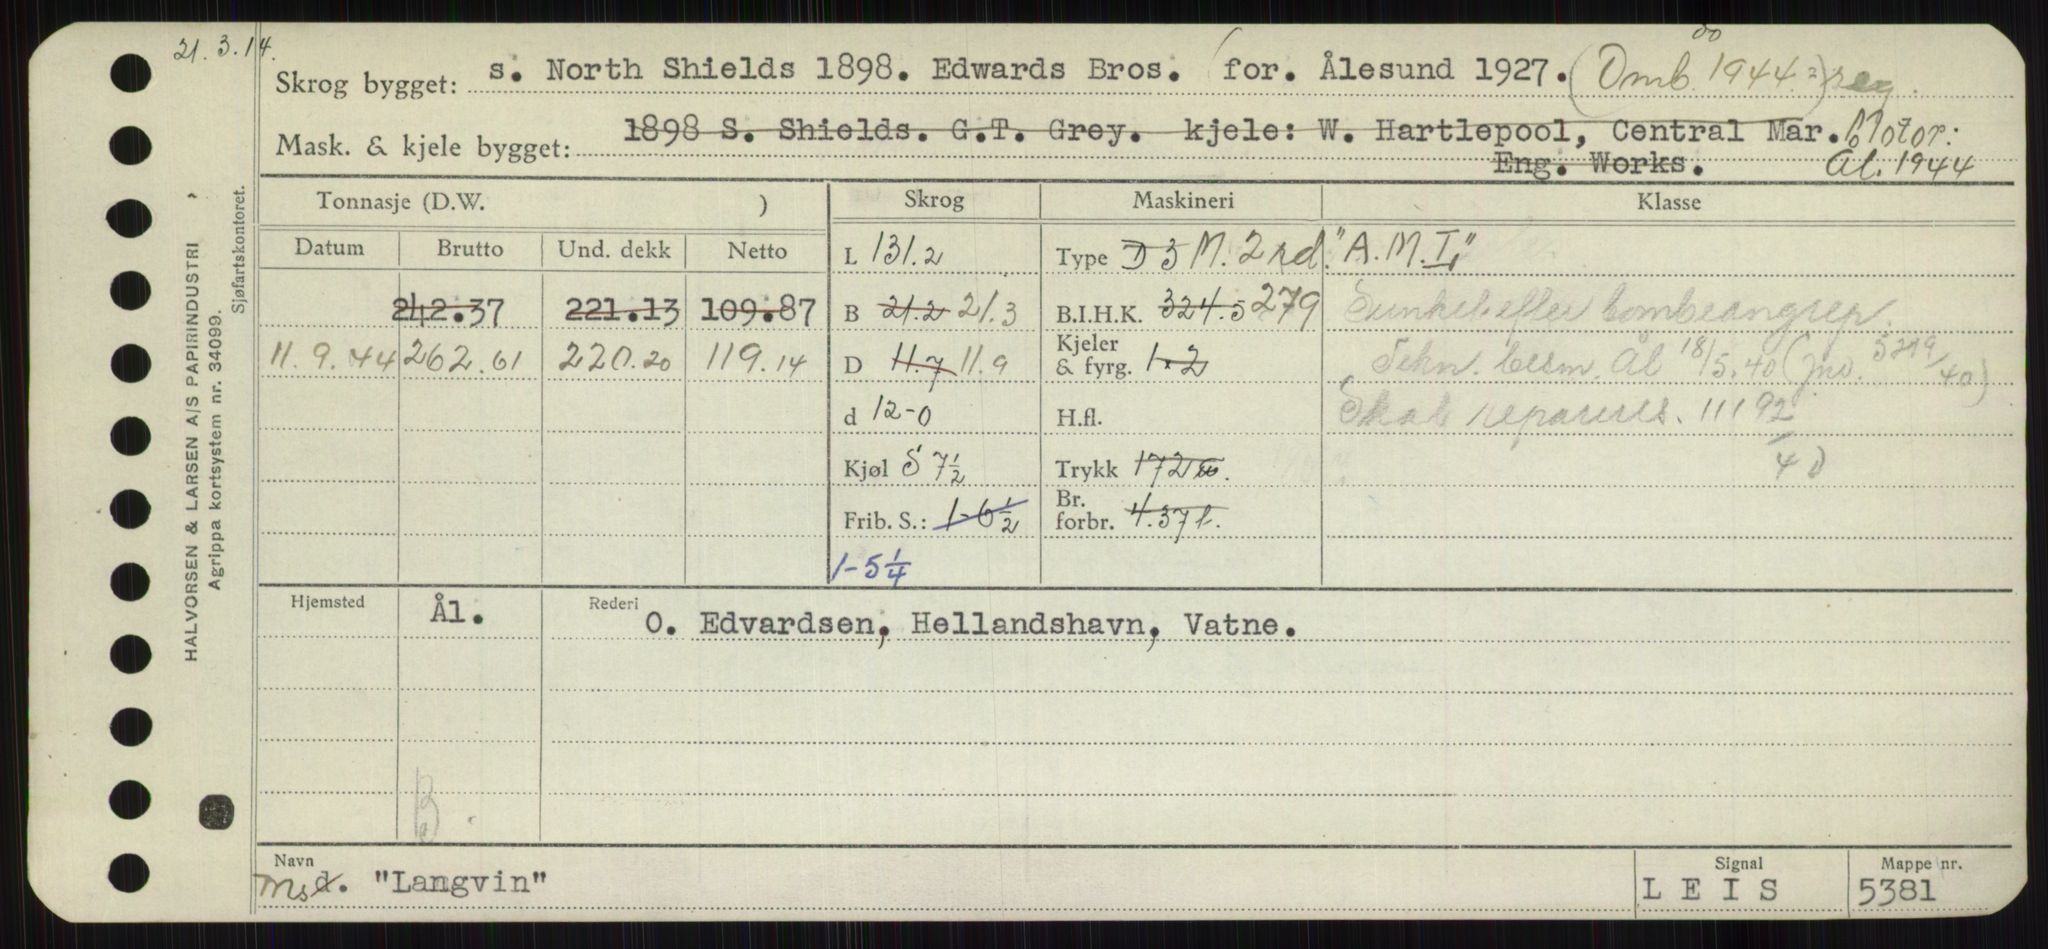 21.3.14.
Skrog bygget: s. North Shields 1898. Edwards Bros. (for. Ålesund 1927. (Omb. 1944.) reg.
Mask. & kjele bygget: 1898 S. Shields. G.T. Grey. kjele: W. Hartlepool, Central Mar. Motor:
Eng. Works. Ål. 1944
Tonnasje (D.W. ) Skrog Maskineri Klasse
Datum Brutto Und. dekk Netto L 131.2 Type D 3 M. 2 rd. "A.M.I."
242.37 221.13 109.87 B 21.2 21.3 B.I.H.K. 324.5 279 Sunket efter bombeangrep.
11.9.44 262.61 220.20 119.14 D 11.7 11.9 Kjeler & fyrg. 1-2 Tekn. besm. Ål 18/5.40 (jno. 5219/40)
d 12-0 H.fl. Skal repareres. 11192/40
Kjøl S 7½ Trykk 172
Frib. S.: 1-6½ Br. forbr. 4.37 t.
1-5¼
Hjemsted Ål. Rederi O. Edvardsen, Hellandshavn, Vatne.
B.
Navn Signal Mappe nr.
Ms d. "Langvin" L E I S 5381
HALVORSEN & LARSEN A/S PAPIRINDUSTRI
Agrippa kortsystem nr. 34099.
Sjøfartskontoret.